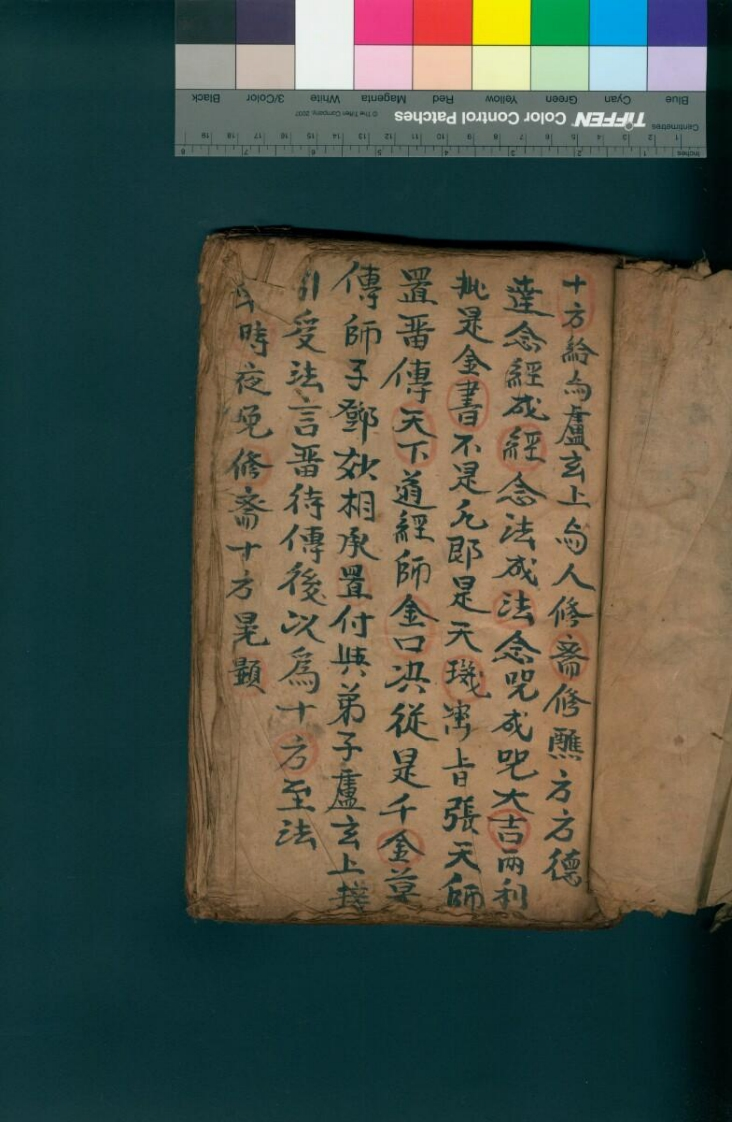 Blue Cyan Green Yellow Red Magenta White 3/Color Black
TIFFEN Color Control Patches © The Tiffen Company, 2007
Centimetres
Inches
十方給与盧玄上与人修斋修醮方方德
達念經成經念法成法念咒成咒大吉両利
此是金書不是凡郎是天璣宻旨張天師
置畨傳天下道經師金口决從是千金莫
傳師子鄧欤相承置付與弟子盧玄上接
引受法言畨待傳後以爲十方至法
時夜晚修斋十方晃顯